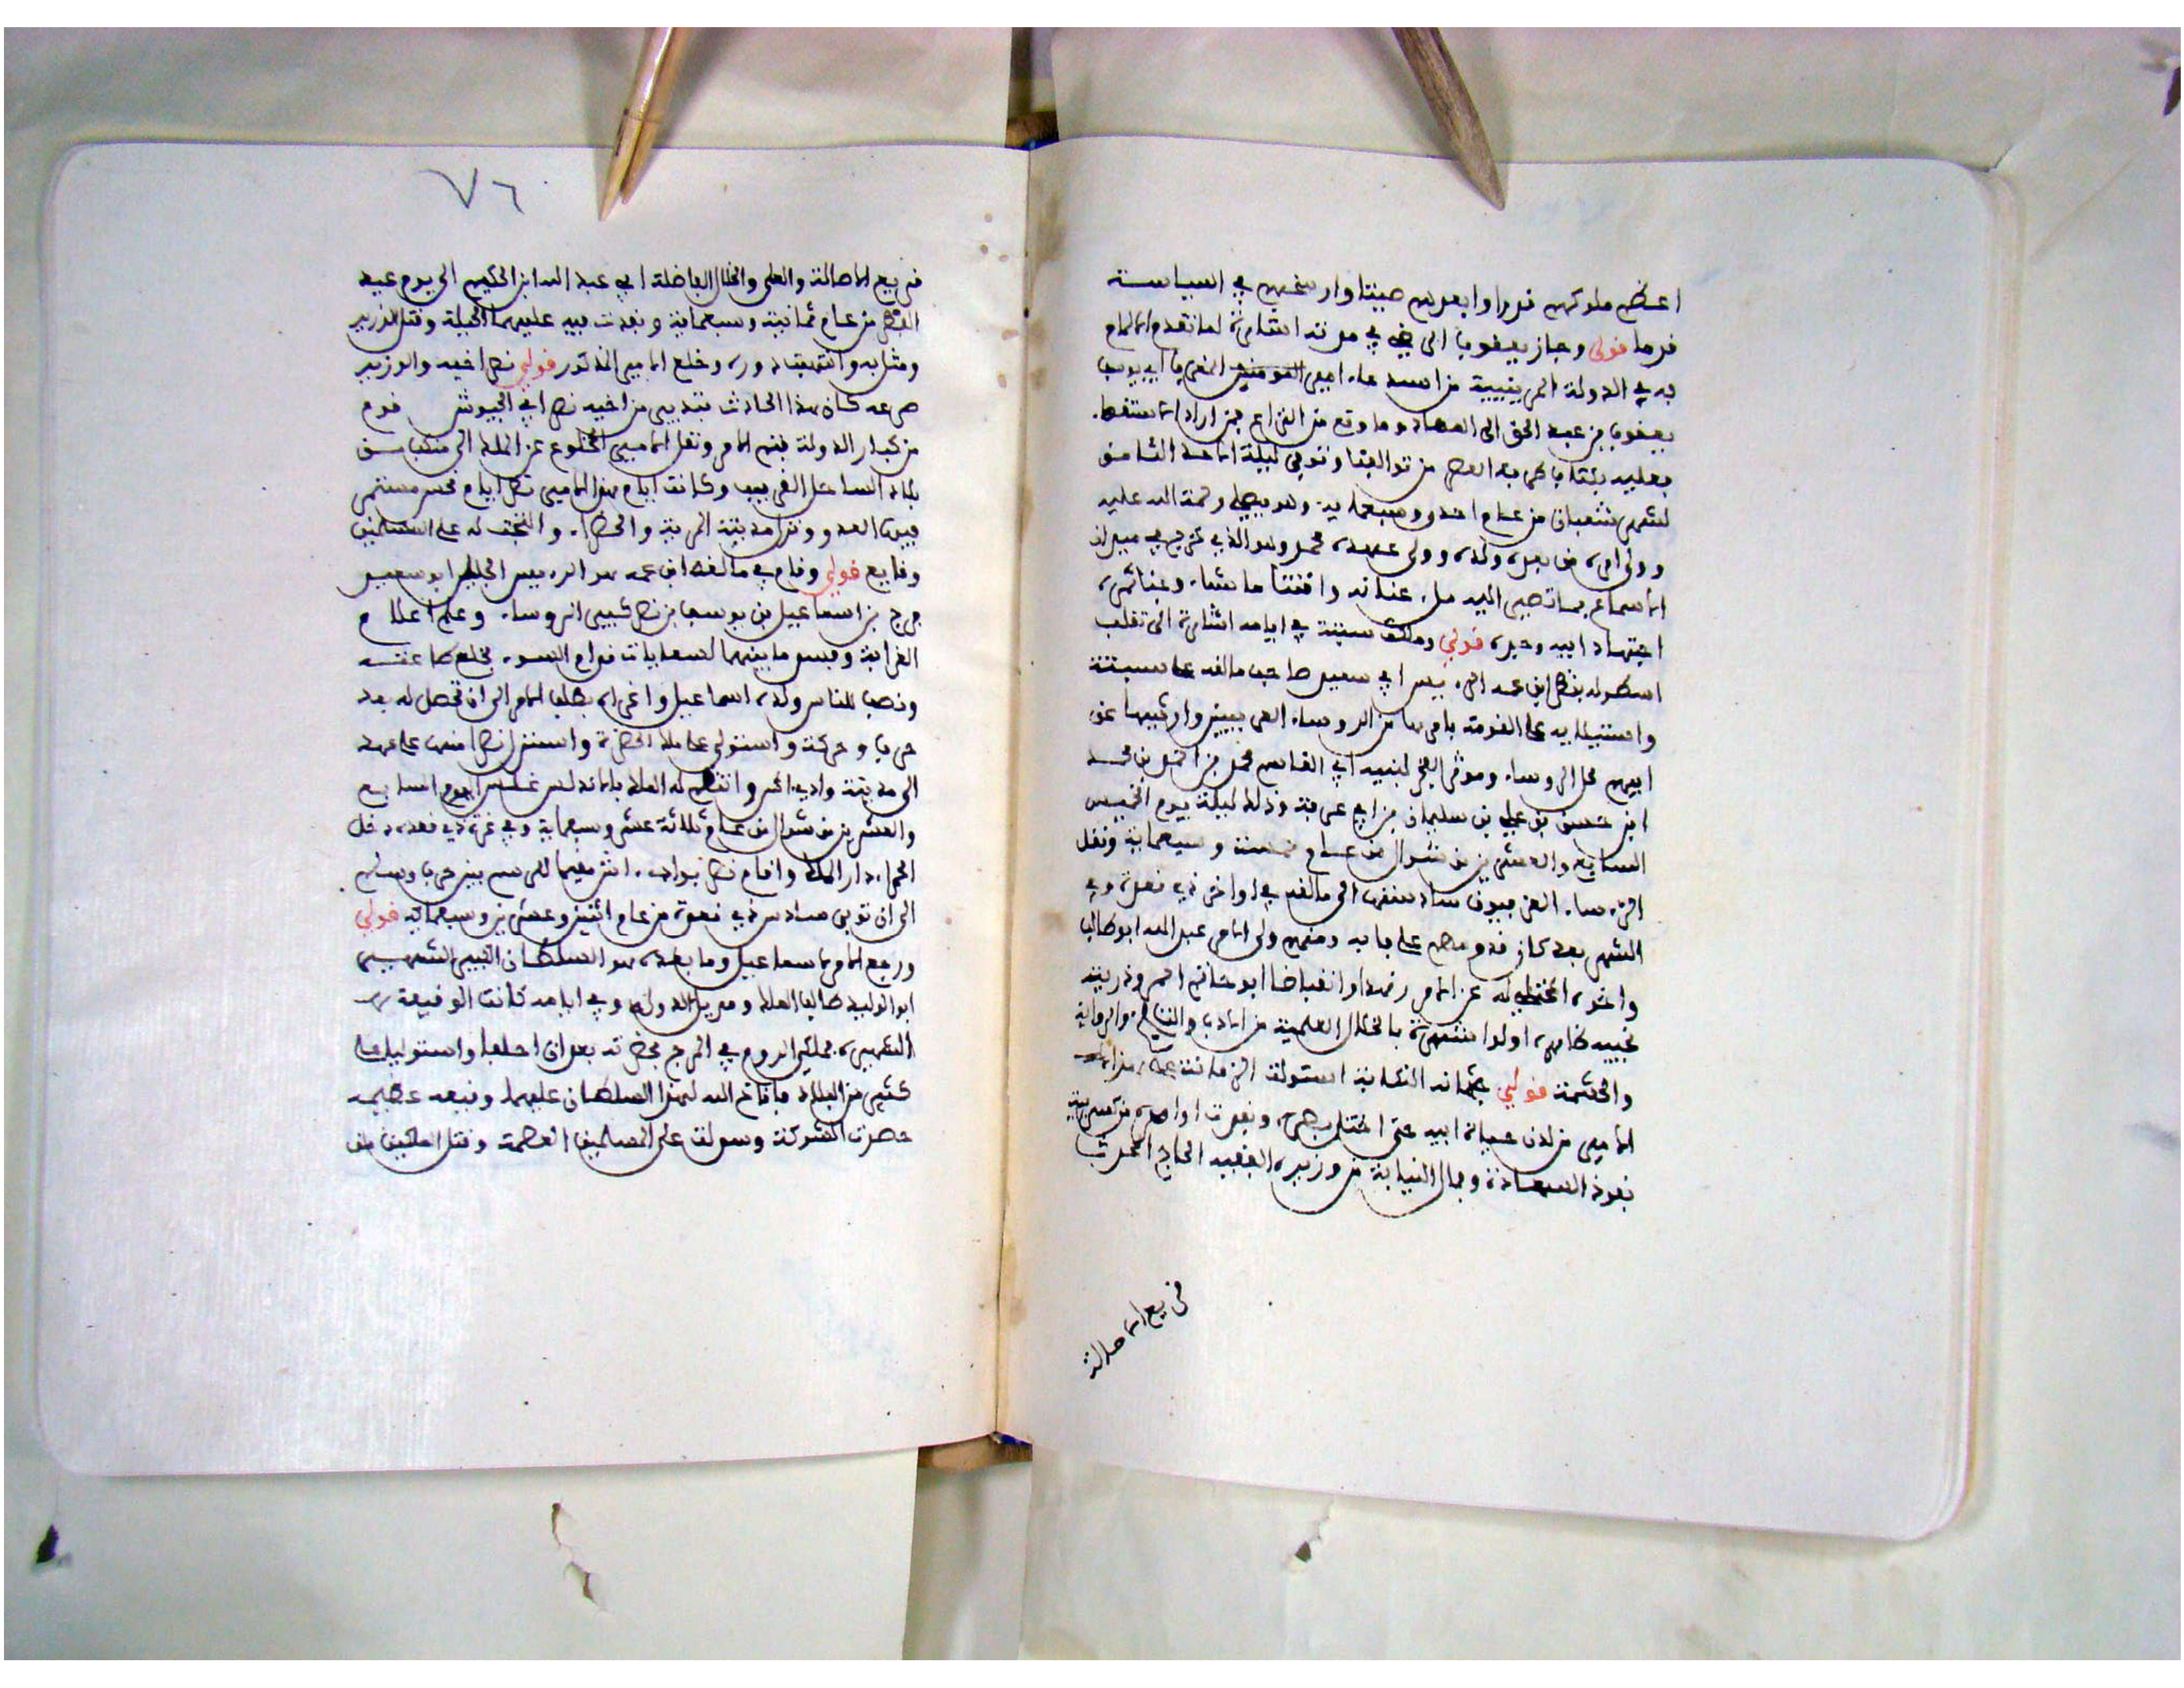 اعظم ملوكهم قدرا وابعدهم صيتا وارسخهم في السياسة
قدما قولي وجاز يعقوب الى في مرته اشارة لما تقدم الالمام
به في الدولة المرينية من استدعاء امير المومنين المغرب ابي يوسف
يعقوب بن عبد الحق الى الجهاد وما وقع من النزاع بمن اراد استنقط
بعليه بئتا با من تواليفنا وتوفي ليلة الاحد الثامن
لشهر شعبان من عام احد وسبعماية وهو يصلي رحمة الله عليه
وولي امره من بعده ولده وولي عهده محمد وهو الذي
الاسماع بما تصير اليه من عنانه واقتنا ما شاء وغنائمه
اجتهاد ابيه وجده قولي وملك سبتة في ايامه اشارة الى تغلب
اسطوله بنظر ابن عمه الرءيس ابي سعيد صاحب مالقه على سبتة
واستيلايه على القومة بامرها من الروساء العزبيين وارثيها عن
ابيهم محل الروساء وموثر الفخر لبنيه ابي القاسم محمد بن احمد بن محمد
ابن حسن بن علي بن سليمان بن ابي عزفة وذلك ليلة يوم الخميس
السابع والعشرين من شوال من عام خمسة وسبعماية ونقل
الرءساء العزبيون سادستهم الى مالقه في اواخر ذي قعدة وفي
الشهر بعد كان قدومهم على بابه ومنهم ولي الامر عبد الله ابو طالب
واخوه المختلى له عن الامر زهدا وانقباضا ابو حاتم احمد وذريته
نجيبه ظاهره اولوا شهرة بالخلال العلمية من الادب والتاريخ والرواية
والحشمة قولي عثمانه النكاية استولت الزمانة على هذا
الامير من لدن حياة ابيه حتى اختل بصره ونفدت اوامره من تمييز
نفوذ السعادة ومجال النيابة من وزيره الفقيه الحاج المحدث
فريع الاصالة
٧٦
فريع الاصالة والعلى والخلال الفاضلة ابي عبد الله ابن الحكيم الى يوم عيد
الفطر من عام ثمانية وسبعماية ونفدت فيه عليهما الحيلة وقتل الوزير
ومثل به وانتهبت دوره وخلع الامير المذكور قولي نصر اخيه والوزير
صرعه كان هذا الحادث بتدبير من اخيه نصر ابي الجيوش قوم
من كبار الدولة فتم الامر ونقل الامير المخلوع عن الملك الى منكب من
بلاد الساحل القريب وكانت ايام هذا الامير نصر ايام نحس مستمر
فيها العدو ونزل مدينة المرية والخضراء والتحق له على المسلمين
وقايع قولي وقام في مالقه ابن عمه هو الرءيس الجليل ابو سعيد
فرج بن اسماعيل بن يوسف بن نصر كبير الروساء وعلم اعلام
القرابة وفسد ما بينهما لسعايات قوام السوء فخلع طاعته
ونصب للناس ولده اسماعيل واغراه بطلب الامر الى ان تحصل له بعد
حرب وحركة واستولى على ملك الحضرة واستنزل نصرا منها على عهد
الى مدينة وادي اش وانتظم له الملك بالاندلس غلس يوم السابع
والعشرين من شوال من عام ثلاثة عشر وسبعماية وفي غرة ذي قعدة دخل
الحمراء دار الملك واقام نصر بوادي اش مقيما للرسم بين حرب وسلم
الى ان توفي سادس ذي قعدة من عام اثنين وعشرين وسبعماية قولي
ورجع الامر لاسماعيل وما بعده هو السلطان الكبير الشهير
ابو الوليد طالب الملك ومديل الدولة وفي ايامه كانت الوقيعة
الشهيرة بملكي الروم في المرج بحضرته بعد ان احلها واستوليا على
كثير من البلاد فاتاح الله لهذا السلطان عليهما وقيعة عظيمة
حصرت الشركة وسولت على المسلمين العصمة وقتل الملكين من